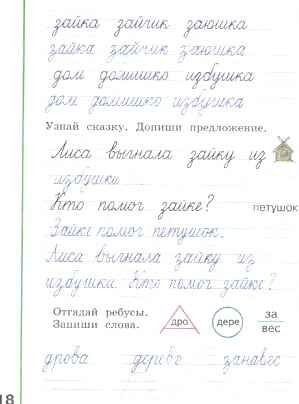 зайка зайчик заюшка
зайка зайчик заюшка
дом домишко избушка
дом домишко избушка
Узнай сказку. Допиши предложение.
Лиса выгнала зайку из
избушки
Кто помог зайке? петушок
Зайке помог петушок.
Лиса выгнала зайку из
избушки. Кто помог зайке?
Отгадай ребусы.
Запиши слова.
дро
дере
за
вес
дрова дерево занавес
18